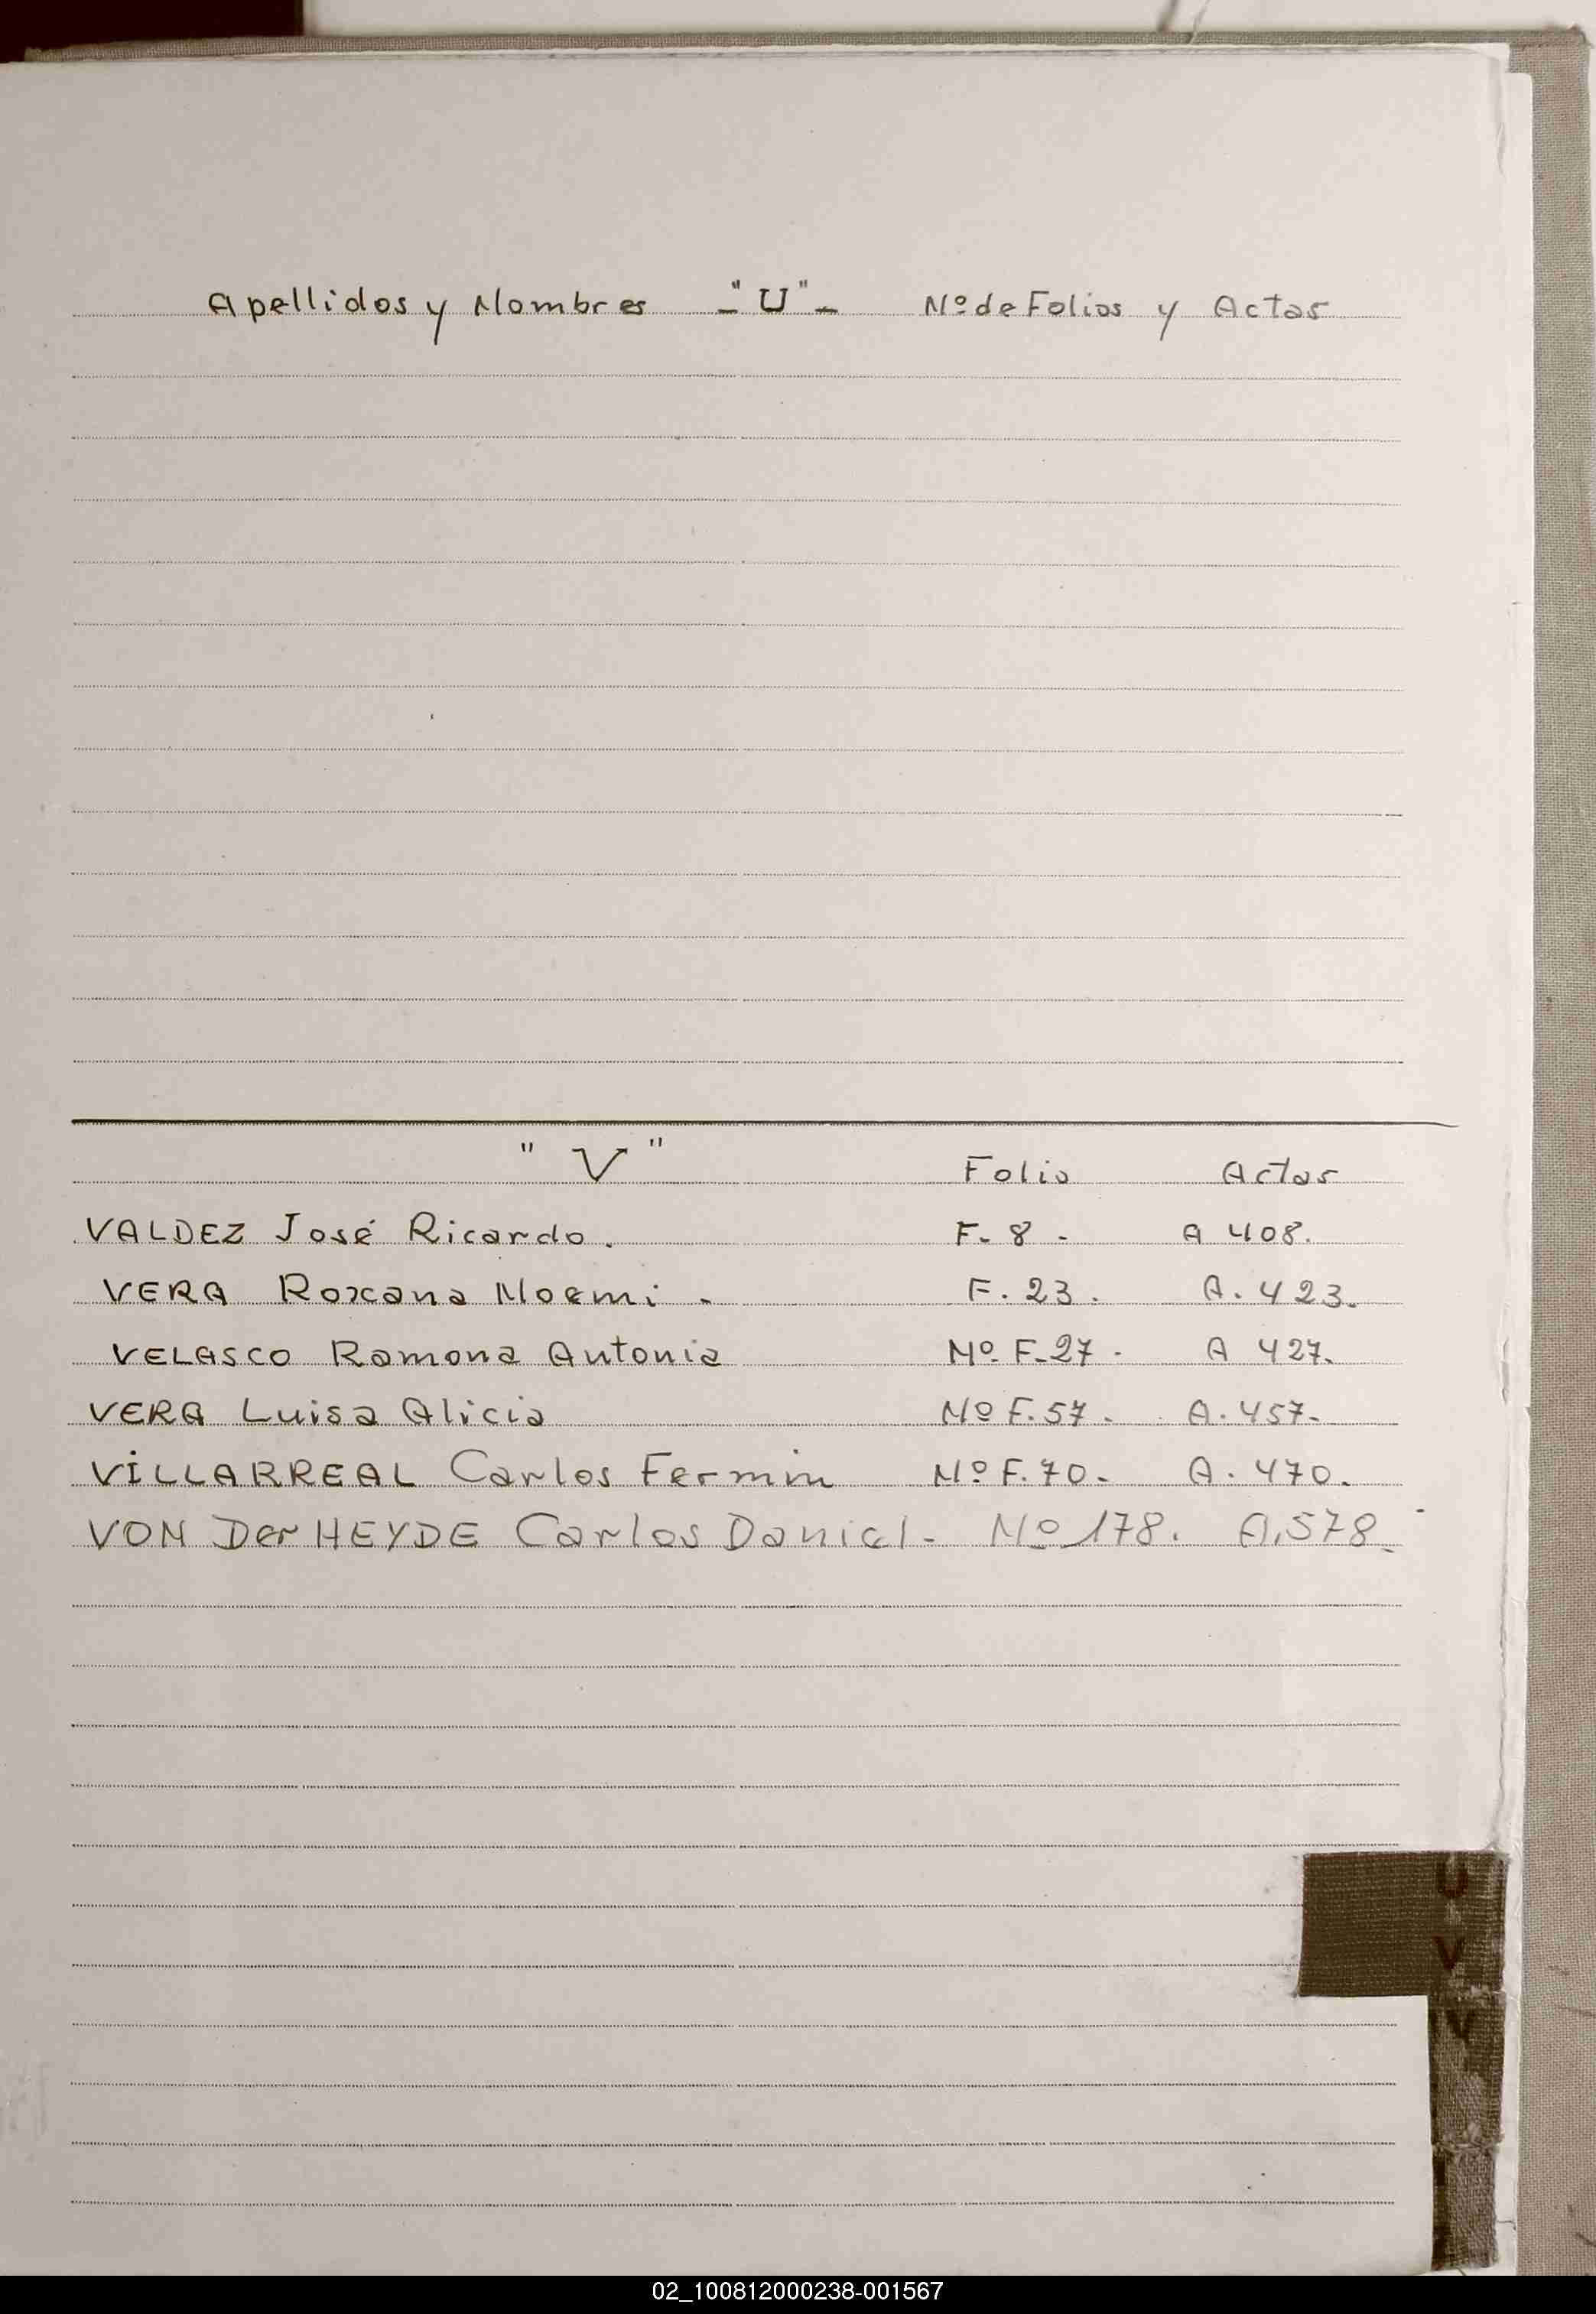 Apellidos y Nombres -"U"- Nº de Folios y Actas
"V" Folio Actas
VALDEZ José Ricardo. F- 8 - A 408.
VERA Roxana Noemi - F. 23. A. 423.
VELASCO Ramona Antonia Nº F-27 - A 427.
VERA Luisa Alicia Nº F.57. A. 457-
VILLARREAL Carlos Fermin Nº F.70- A. 470.
VON Der HEYDE Carlos Daniel- Nº 178. A.578.
U
V
02_100812000238-001567